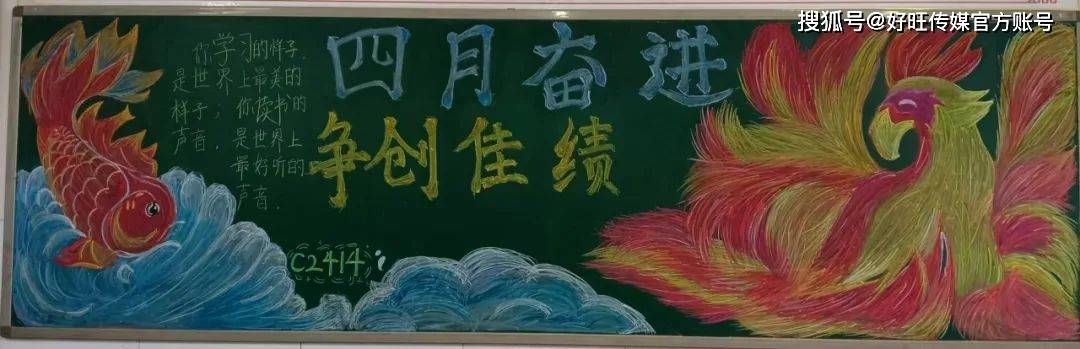 搜狐号@好旺传媒官方账号
你学习的样子
是世界上最美的
样子；你读书的
声音，是世界上
最好听的
声音.
四月奋进
争创佳绩
C2414